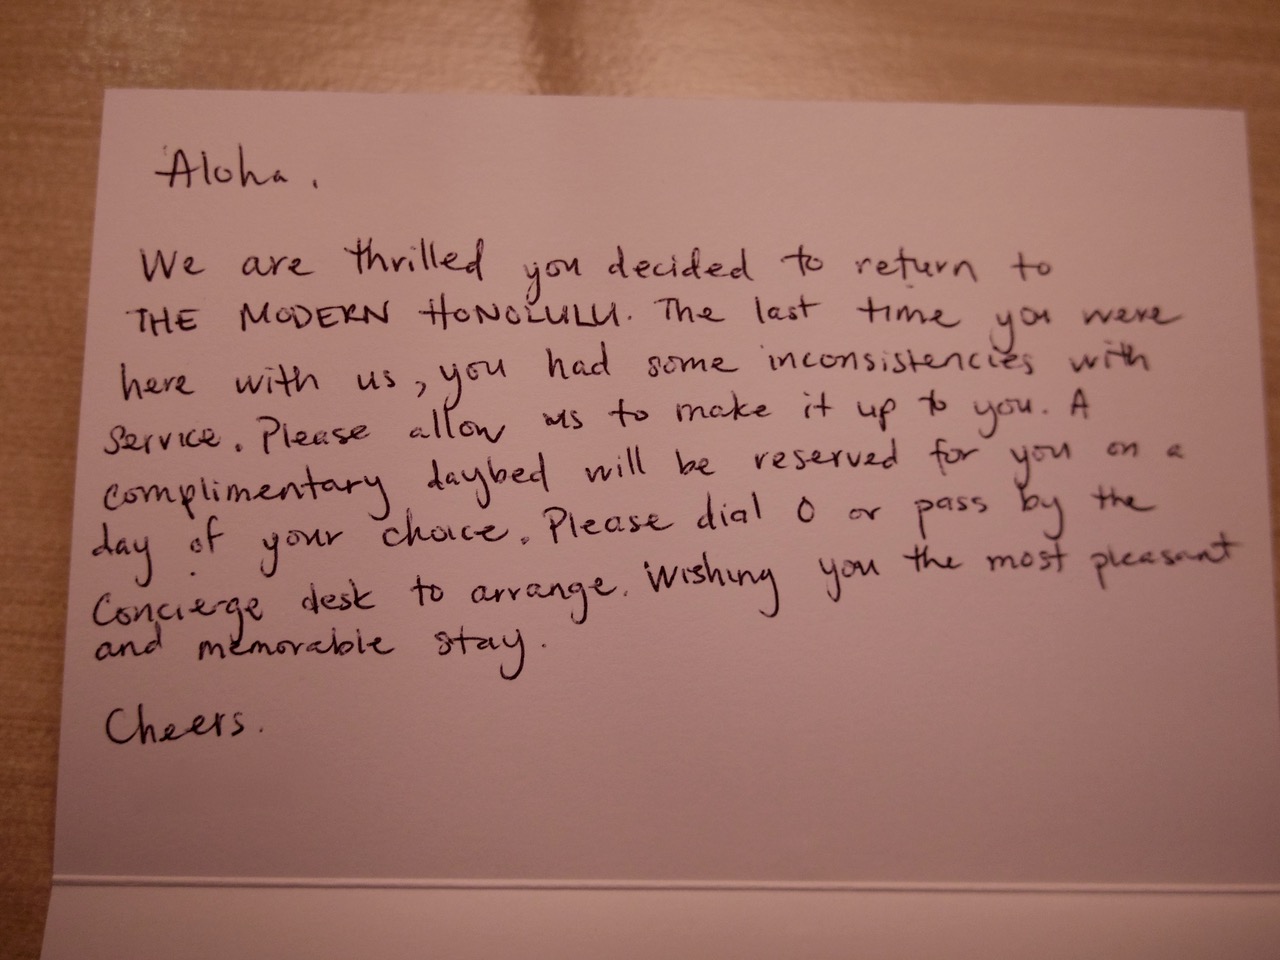 Aloha,
We are thrilled you decided to return to
THE MODERN HONOLULU. The last time you were
here with us, you had some inconsistencies with
service. Please allow us to make it up to you. A
complimentary daybed will be reserved for you on a
day of your choice. Please dial 0 or pass by the
Concierge desk to arrange. Wishing you the most pleasant
and memorable stay.
Cheers.